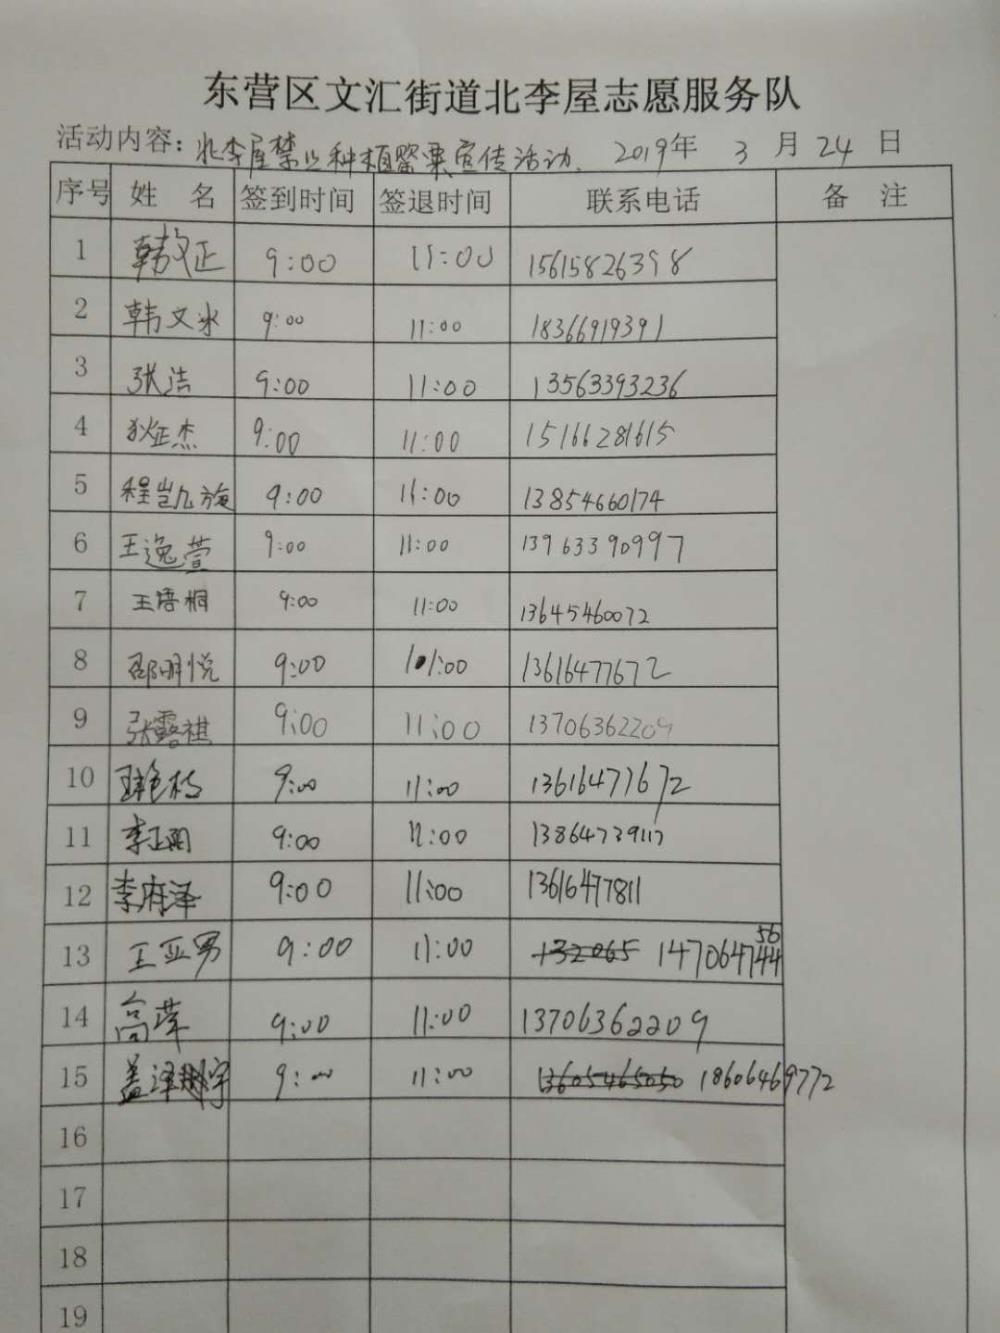 东营区文汇街道北李屋志愿服务队
活动内容：北李屋禁止种植罂粟宣传活动. 2019年 3 月 24 日
序号 姓 名 签到时间 签退时间 联系电话 备 注
1 韩文正 9:00 11:00 15615826398
2 韩文冰 9:00 11:00 18366919391
3 张洁 9:00 11:00 13563393236
4 狄正杰 9:00 11:00 15166281615
5 程凯旋 9:00 11:00 13854660174
6 王逸萱 9:00 11:00 13963390997
7 王梧桐 9:00 11:00 13645460072
8 邵明悦 9:00 11:00 13616477672
9 张露祺 9:00 11:00 13706362209
10 9:00 11:00 13616477672
11 李正阳 9:00 11:00 13864739117
12 李府泽 9:00 11:00 13616477811
13 王亚男 9:00 11:00 147064744 56
14 高萍 9:00 11:00 13706362209
15 盖泽宇 9:00 11:00 18606469772
16
17
18
19